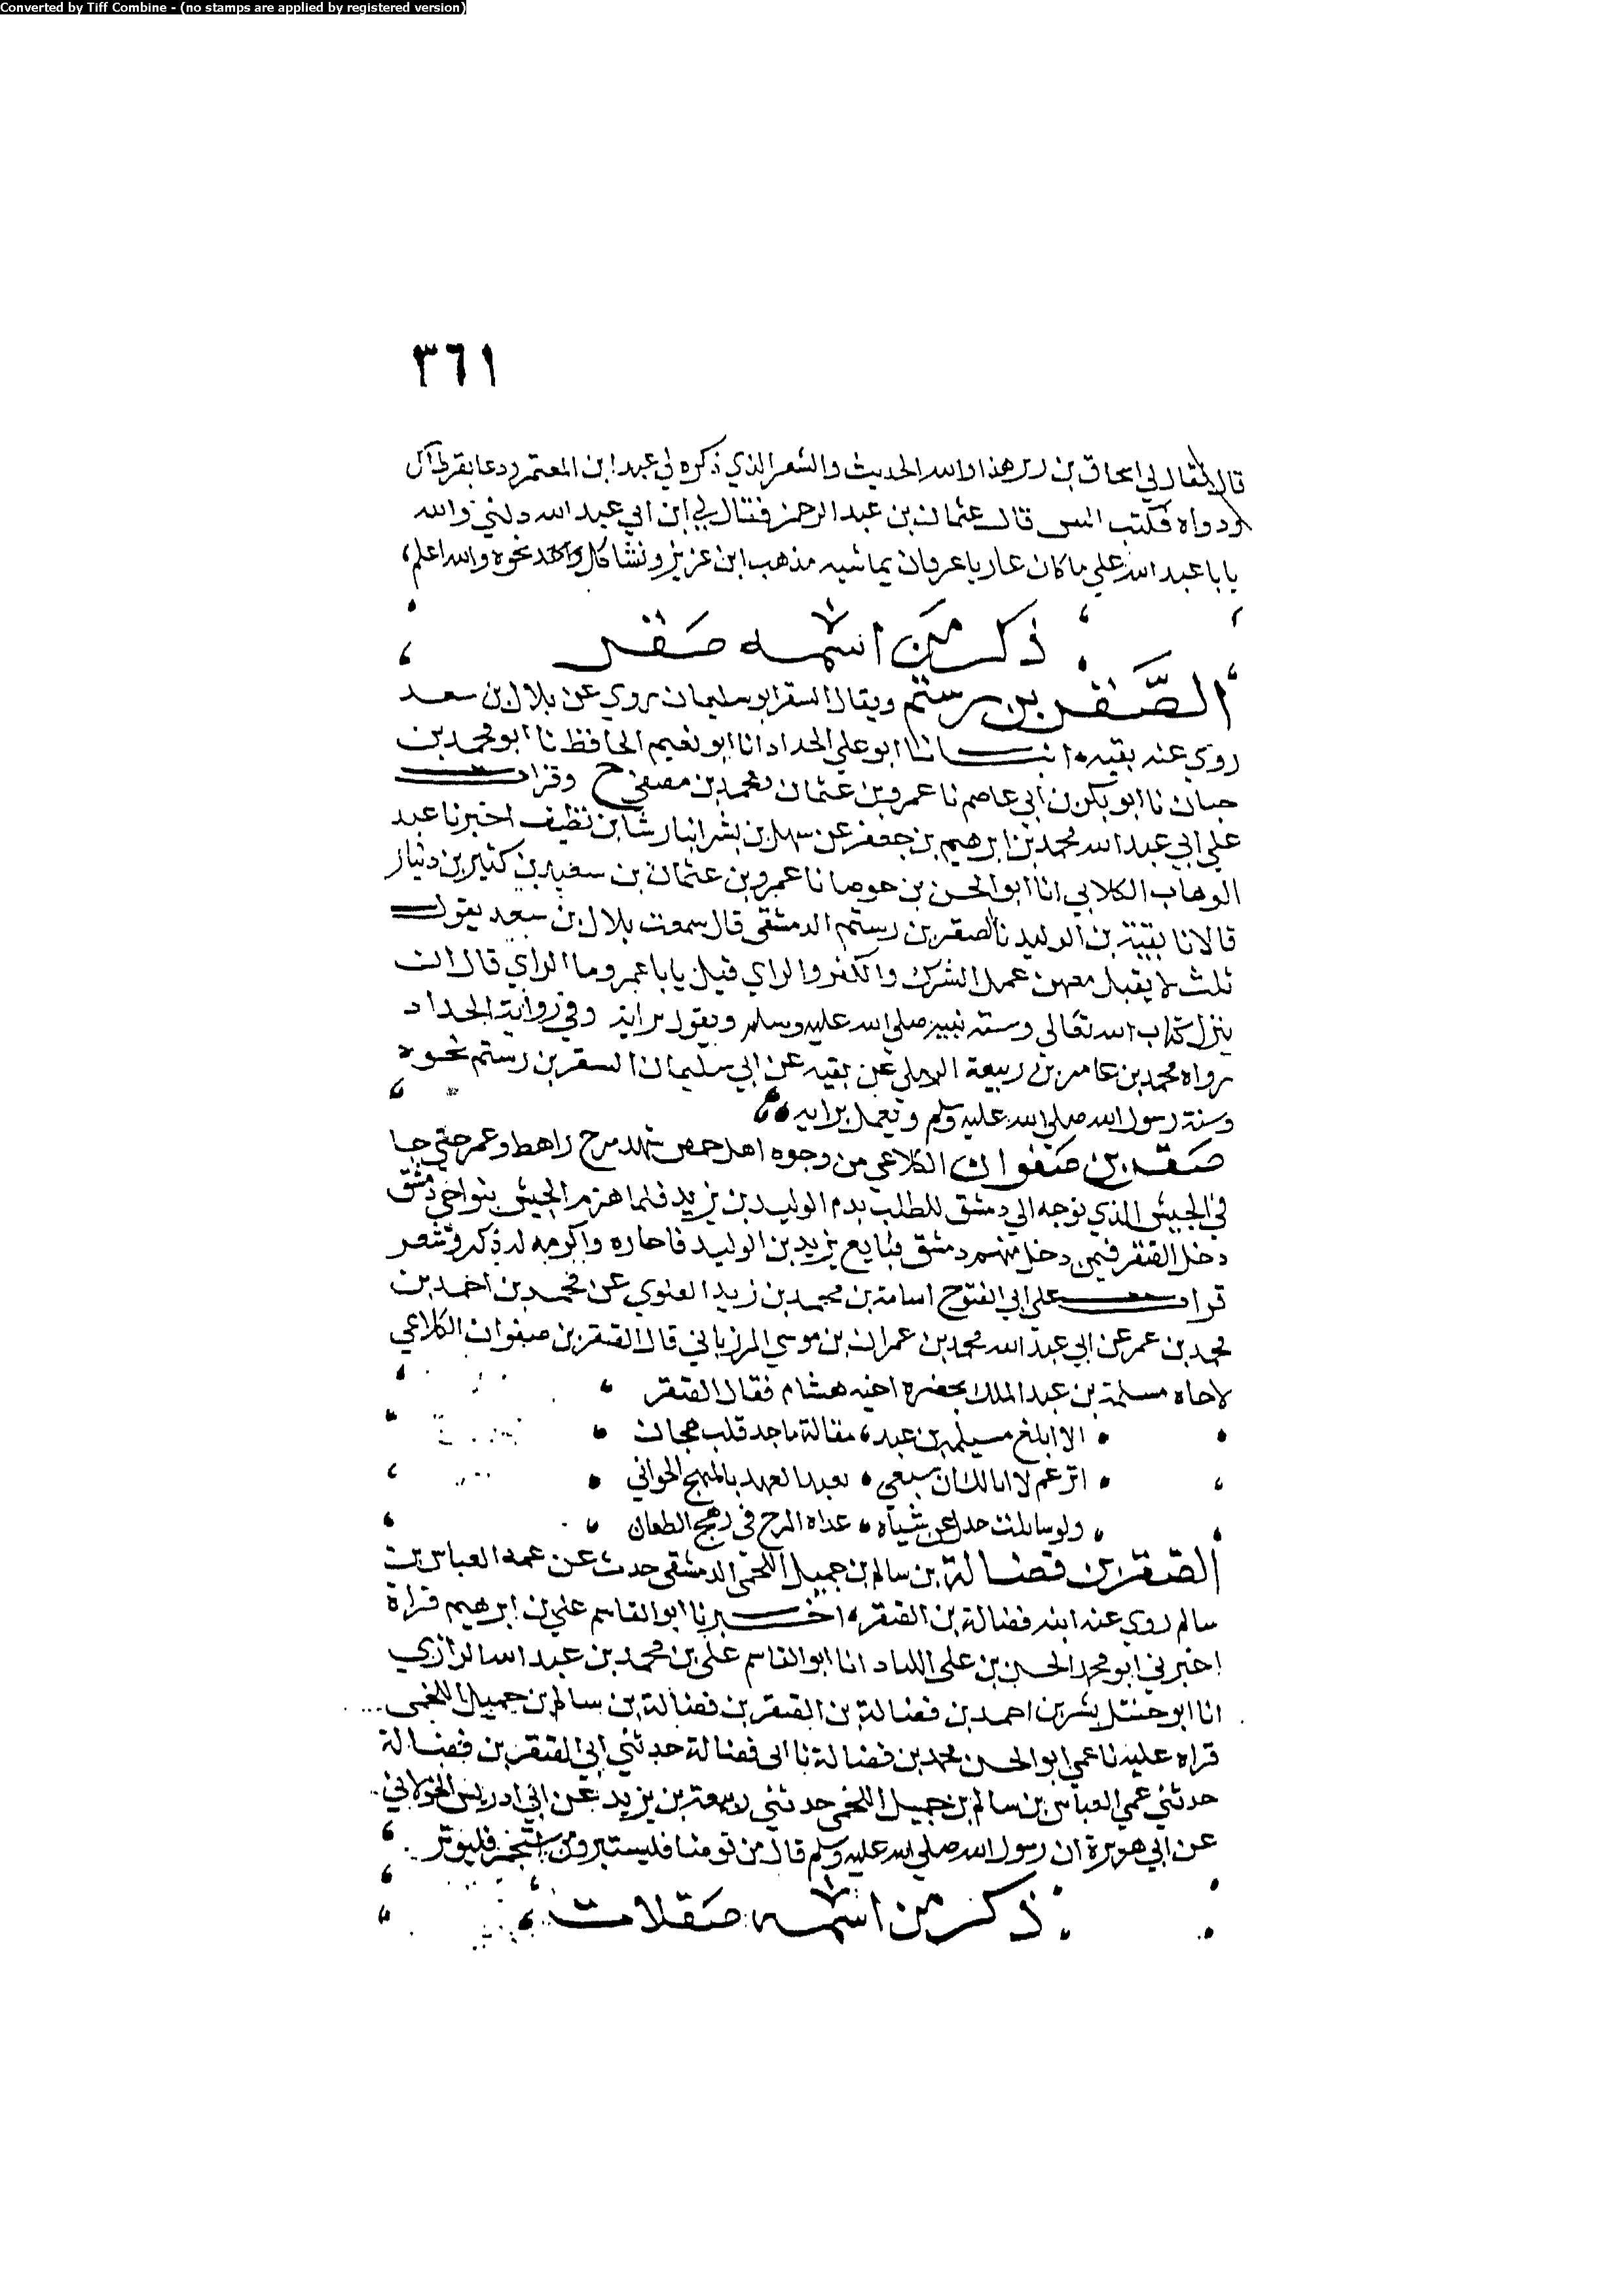 Converted by Tiff Combine - (no stamps are applied by registered version)
٣٦١
قال فقال لي اسحاق بن هذا والله الحديث والشعر الذي ذكره لي عبد ابن المعتمر ودعا بقرطاس
ودواه فكتب قال عثمان بن عبد الرحمن فقال لي ابن ابي عبد الله دلني والله
يابا عبد الله علي ما كان عار يا عرفان مذهب ابن عزيز ونشاكل نحوه والله اعلم
ذكر من اسمه صقر
الصَّقر بن رستم ويقال السقر ابو سليمان روي عن بلال بن سعد
روي عنه بقيه انبانا ابو علي الحداد انا ابو نعيم الحافظ نا ابو محمد بن
حبان نا ابو بكر بن ابي عاصم نا عمرو بن عثمان ومحمد بن مصفي ح وقرات
علي ابي عبد الله محمد بن ابرهيم بن جعفر عن سهل بن بشر انبا رشا بن نظيف اخبرنا عبد
الوهاب الكلابي انا ابو الحسن بن جوصا نا عمرو بن عثمان بن سعيد بن كثير بن دينار
قالا نا بقية بن الوليد نا الصقر بن رستم الدمشقي قال سمعت بلال بن سعد يقول
ثلث لا يقبل معهن عمل الشرك والكفر والراي قيل يابا عمرو وما الراي قال
ينزل كتاب الله تعالي وسنة نبيه صلي الله عليه وسلم ويقول برايه وفي رواية الحداد
وسنة رسول الله صلي الله عليه وسلم ويعمل برايه
رواه محمد بن عامر بن ربيعة الرملي عن بقيه عن ابي سليمان السقر بن رستم نحوه
صقر بن صفوان الكلاعي من وجوه اهل حمص شهد مرج راهط وعمر حتي جا
في الجيش الذي توجه الي دمشق للطلب بدم الوليد بن يزيد فلما هزم الجيش بنواحي دمشق
دخل الصقر فيمن دخل منهم دمشق فبايع يزيد بن الوليد فاجازه واكرمه له ذكر وشعر
قرات علي ابي الفتوح اسامة بن محمد بن زيد العلوي عن محمد بن احمد بن
محمد بن عمر عن ابي عبد الله محمد بن عمران بن موسي المرزباني قال الصقر بن صفوان الكلاعي
لاحاه مسلمة بن عبد الملك بحضرة اخيه هشام فقال الصقر
الا ابلغ مسيلمة بن عبد مقالة ماجد قلب هجان
اتزعم لا ابالك ان سبعي بعيد العهد بالمنهج
ولو سايلت عن شباه غداه المرج في رهج الطعان
الصقر بن فضالة بن سالم بن جميل اللخمي الدمشقي حدث عن عمه العباس بن
سالم روي عنه ابنه فضالة بن الصقر اخبرنا ابو القاسم علي بن ابرهيم قراة
اخبرني ابو محمد الحسن بن علي اللباد انا ابو القاسم علي بن محمد بن عبد الله الرازي
انا ابو حنتل بشر بن احمد بن فضالة بن الصقر بن فضالة بن سالم بن جميل اللخمي
قراه عليه نا عمي ابو الحسن محمد بن فضالة نا ابي فضالة حدثني ابي الصقر بن فضالة
حدثني عمي العباس بن سالم بن جميل اللخمي حدثني ربيعة بن يزيد عن ابي ادريس الخولاني
عن ابي هريرة ان رسول الله صلي الله عليه وسلم قال من توضا فليستنثر ومن استجمر فليوتر
ذكر من اسمه صقلاب